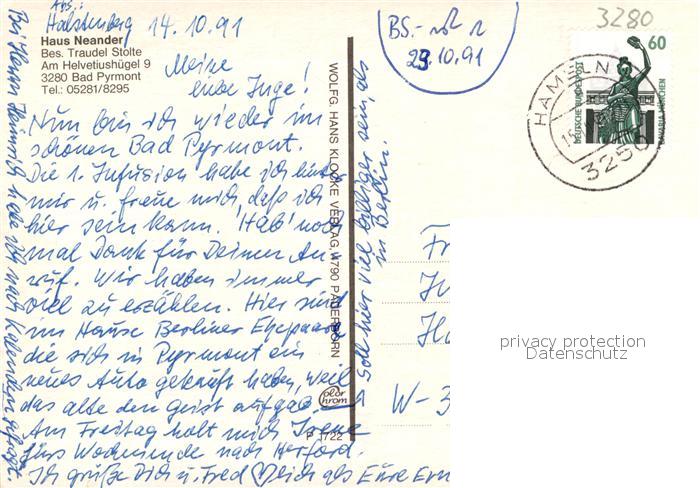 Abs.:
Halstenberg 14.10.91
Haus Neander
Bes. Traudel Stolte
Am Helvetiushügel 9
3280 Bad Pyrmont
Tel.: 05281/8295
Meine
liebe Inge!
Nun bin ich wieder im
schönen Bad Pyrmont.
Die 1. Infusion habe ich hinter
mir u. freue mich, daß ich
hier sein kann. Hab' noch
mal Dank für Deinen An
ruf. Wir haben immer
viel zu erzählen. Hier sind
im Hause Berliner Ehepaare
die sich in Pyrmont ein
neues Auto gekauft haben, weil
das alte den Geist aufgab.
Am Freitag holt mich Irene
fürs Wochenende nach Herford.
Ich grüße Dich u. Fred herzlich als Eure Erm
Bei Herrn Heinrich habe ich nach Kalendern gefragt.
WOLFG. HANS KLOCKE VERLAG, 4790 PADERBORN
color
chrom
P 1722
in Berlin.
BS.- 
23.10.91
3280
60
DEUTSCHE BUNDESPOST
BAVARIA MÜNCHEN
HAMELN
3250
Fr
Ha
W-3
privacy protection
Datenschutz